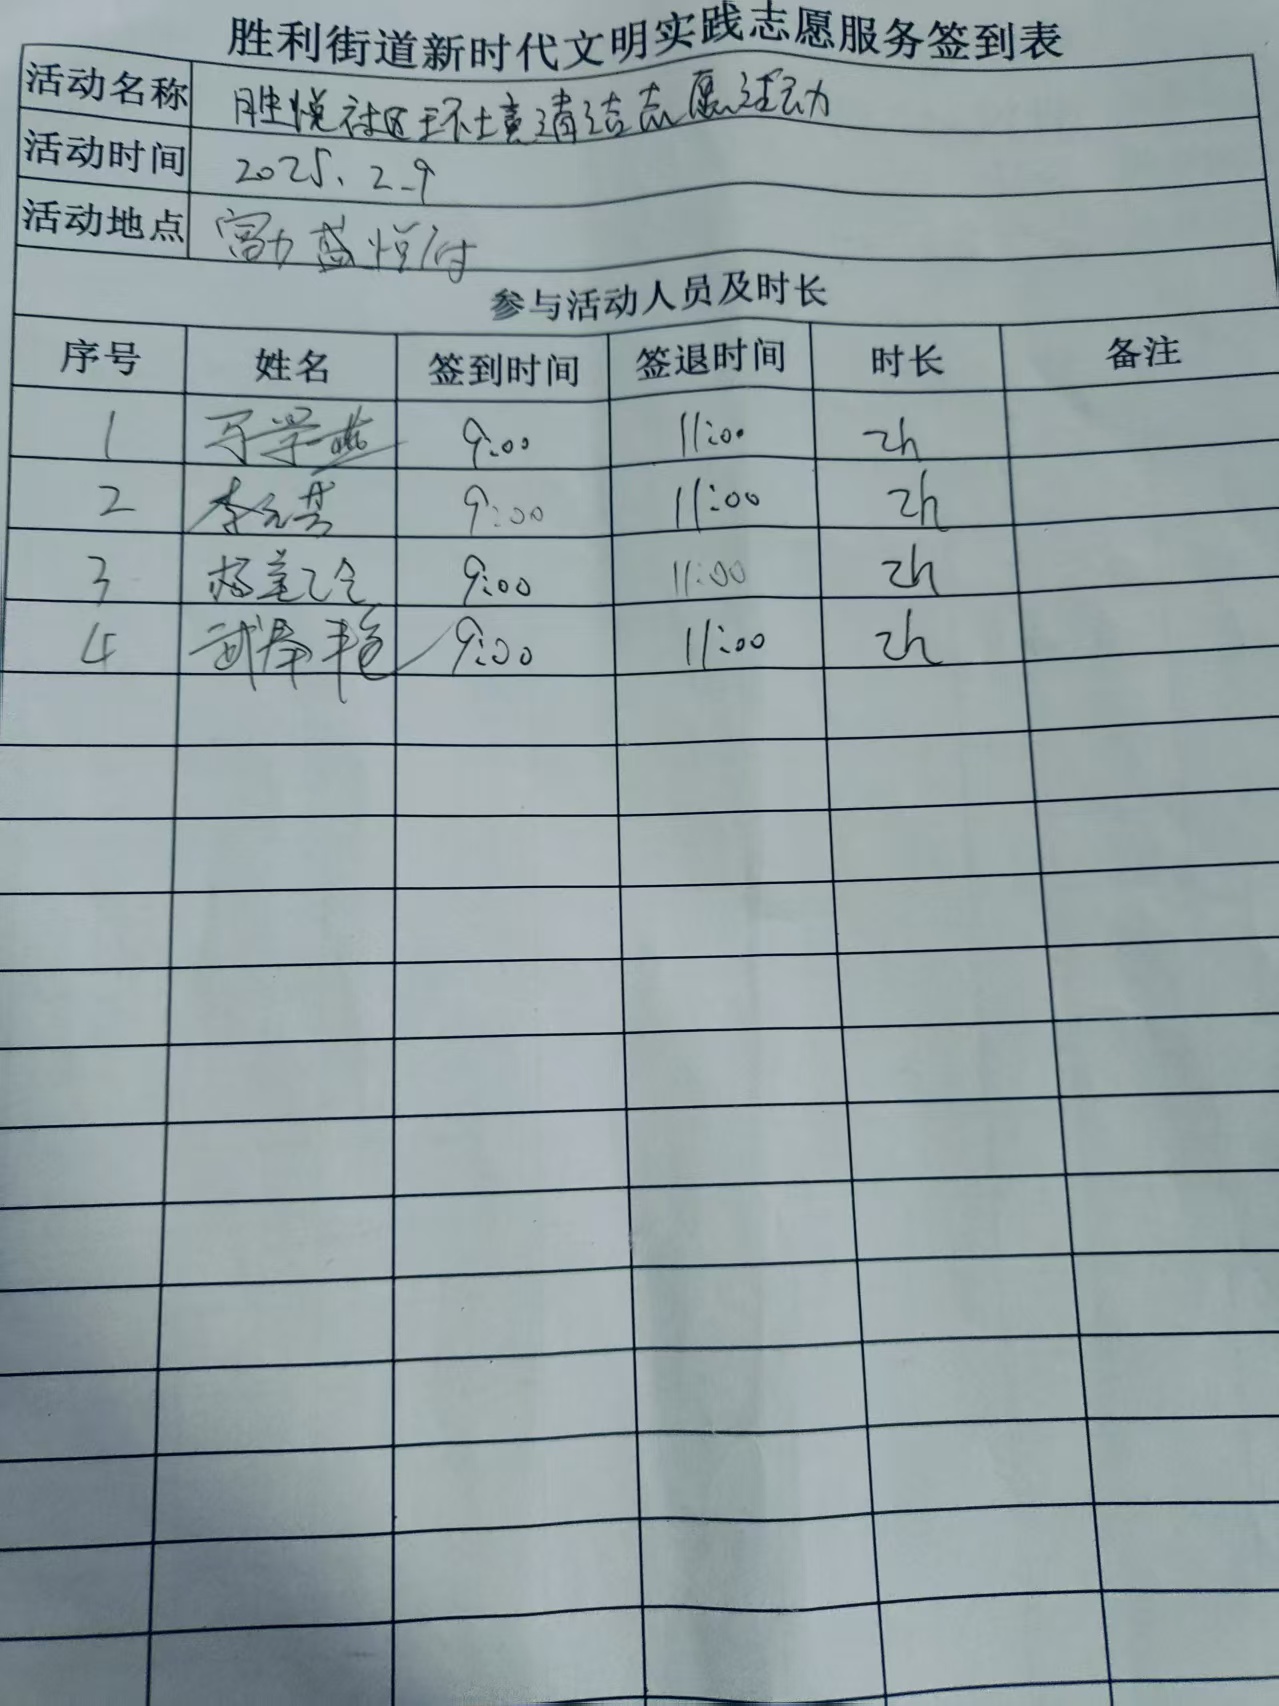 胜利街道新时代文明实践志愿服务签到表
活动名称 胜悦社区环境清洁志愿活动
活动时间 2025.2.9
活动地点 富力盛悦府
参与活动人员及时长
序号 姓名 签到时间 签退时间 时长 备注
1 9:00 11:00 2h
2 李元芸 9:00 11:00 2h
3 9:00 11:00 2h
4 武春艳 9:00 11:00 2h